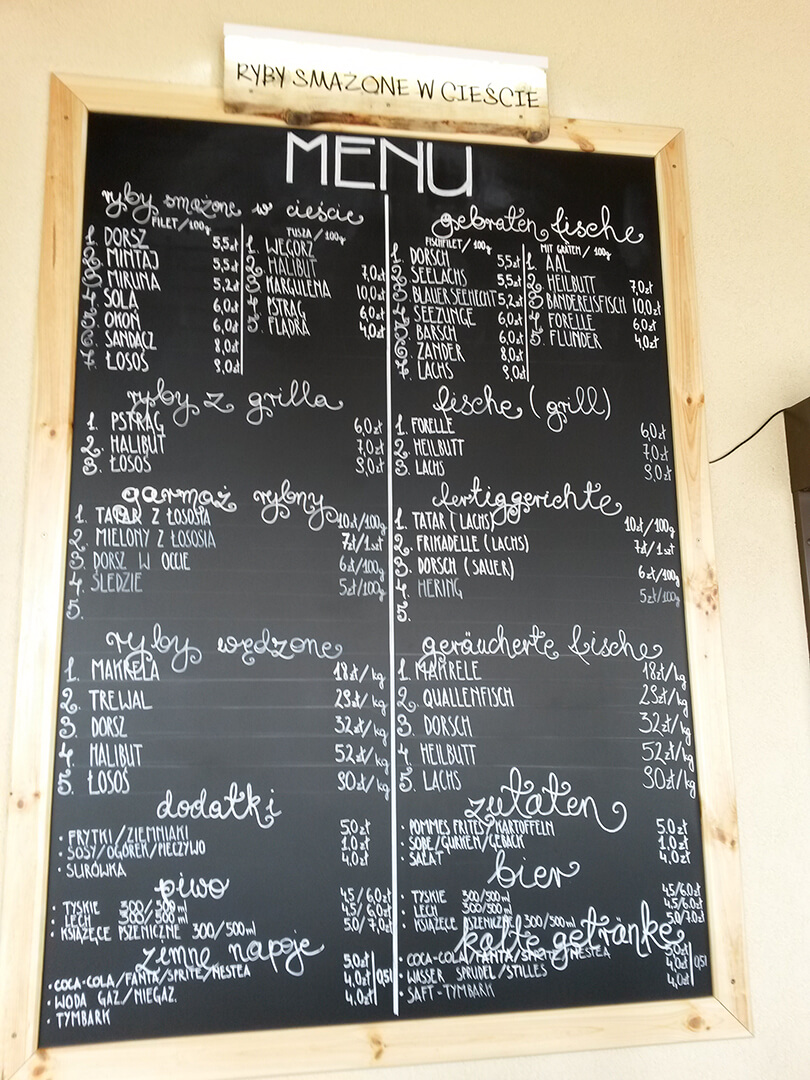 RYBY SMAŻONE W CIEŚCIE
MENU
ryby smażone w cieście
FILET/100g
1. DORSZ 5,5zł
2. MINTAJ 5,5zł
3. MIRUNA 5,2zł
4. SOLA 6,0zł
5. OKOŃ 6,0zł
6. SANDACZ 8,0zł
7. ŁOSOŚ 9,0zł
TUSZA/100g
1. WĘGORZ
2. HALIBUT 7,0zł
3. KARGULENA 10,0zł
4. PSTRĄG 6,0zł
5. FLĄDRA 4,0zł
ryby z grilla
1. PSTRĄG 6,0zł
2. HALIBUT 7,0zł
3. ŁOSOŚ 9,0zł
garmaż rybny
1. TATAR Z ŁOSOSIA 10zł/100g
2. MIELONY Z ŁOSOSIA 7zł/1szt
3. DORSZ W OCCIE 6zł/100g
4. ŚLEDZIE 5zł/100g
5.
ryby wędzone
1. MAKRELA 18zł/kg
2. TREWAL 29zł/kg
3. DORSZ 32zł/kg
4. HALIBUT 52zł/kg
5. ŁOSOŚ 90zł/kg
dodatki
• FRYTKI/ZIEMNIAKI 5.0zł
• SOSY/OGÓREK/PIECZYWO 1.0zł
• SURÓWKA 4.0zł
piwo
• TYSKIE 300/500ml 4.5/6.0zł
• LECH 300/500ml 4.5/6.0zł
• KSIĄŻĘCE PSZENICZNE 300/500ml 5.0/7.0zł
zimne napoje
• COCA-COLA/FANTA/SPRITE/NESTEA 5.0zł
• WODA GAZ/NIEGAZ. 4.0zł 0,5l
• TYMBARK 4.0zł
gebraten fische
FISCHFILET/100g
1. DORSCH 5,5zł
2. SEELACHS 5,5zł
3. BLAUER SEEHECHT 5,2zł
4. SEEZUNGE 6,0zł
5. BARSCH 6,0zł
6. ZANDER 8,0zł
7. LACHS 9,0zł
MIT GRÄTEN/100g
1. AAL
2. HEILBUTT 7,0zł
3. BANDEREISFISCH 10,0zł
4. FORELLE 6,0zł
5. FLUNDER 4,0zł
fische (grill)
1. FORELLE 6,0zł
2. HEILBUTT 7,0zł
3. LACHS 9,0zł
fertiggerichte
1. TATAR (LACHS) 10zł/100g
2. FRIKADELLE (LACHS) 7zł/1szt
3. DORSCH (SAUER) 6zł/100g
4. HERING 5zł/100g
5.
geräucherte fische
1. MAKRELE 18zł/kg
2. QUALLENFISCH 29zł/kg
3. DORSCH 32zł/kg
4. HEILBUTT 52zł/kg
5. LACHS 90zł/kg
zutaten
• POMMES FRITES/KARTOFFELN 5.0zł
• SOßE/GURKEN/GEBÄCK 1.0zł
• SALAT 4.0zł
bier
• TYSKIE 300/500ml 4.5/6.0zł
• LECH 300/500ml 4.5/6.0zł
• KSIĄŻĘCE PSZENICZNE 300/500ml 5.0/7.0zł
kalte getränke
• COCA-COLA/FANTA/SPRITE/NESTEA 5.0zł
• WASSER SPRUDEL/STILLES 4.0zł 0,5l
• SAFT-TYMBARK 4.0zł